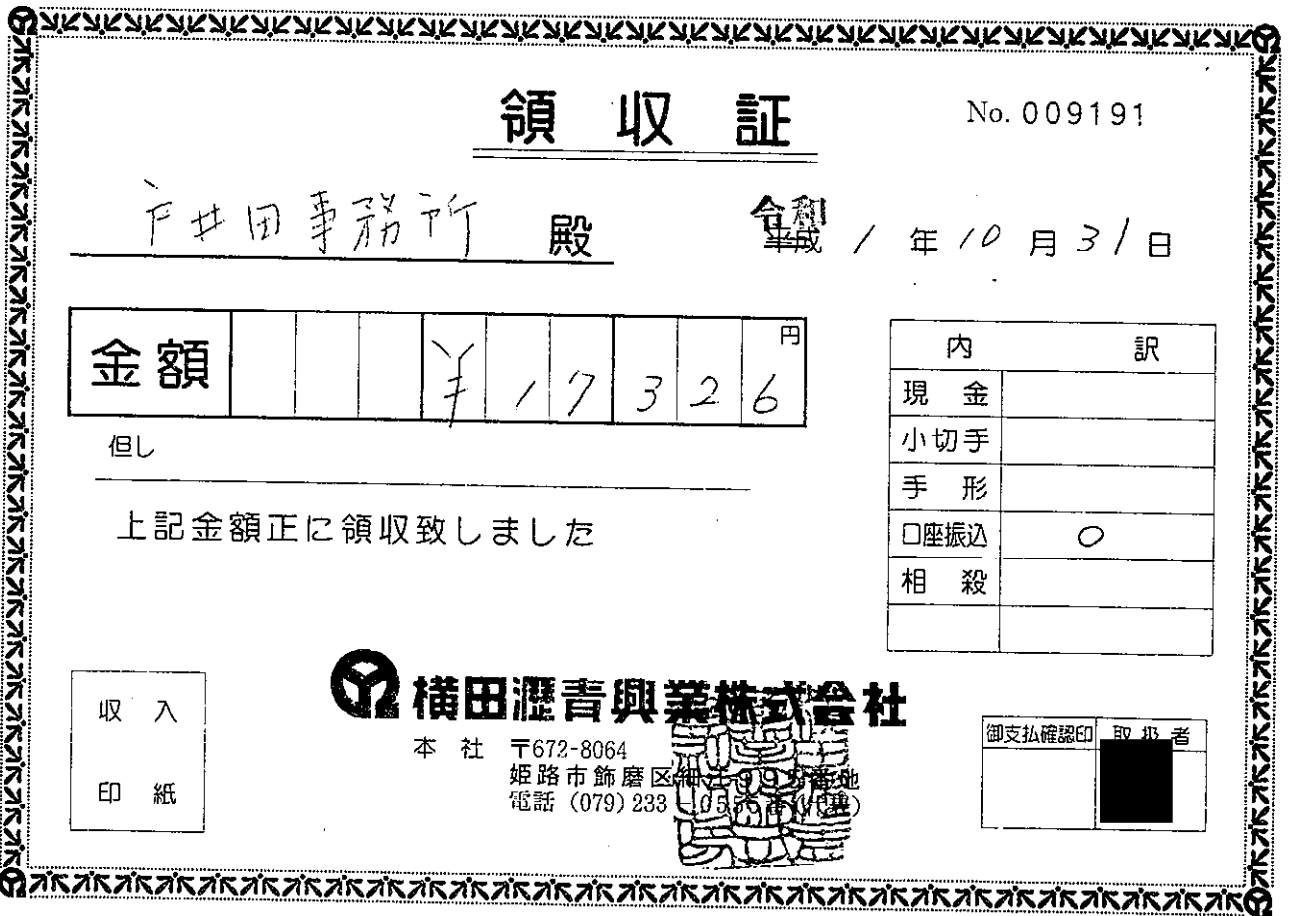 領収証
No. 009191
戸井田事務所 殿
令和 1 年 10 月 31 日
平成
金額 ¥ 1 7 3 2 6 円
但し
上記金額正に領収致しました
内訳
現金
小切手
手形
口座振込 ○
相殺
収入
印紙
横田瀝青興業株式会社
本社 〒672-8064
姫路市飾磨区細江995番地
電話 (079) 233-0555番(代表)
御支払確認印 取扱者